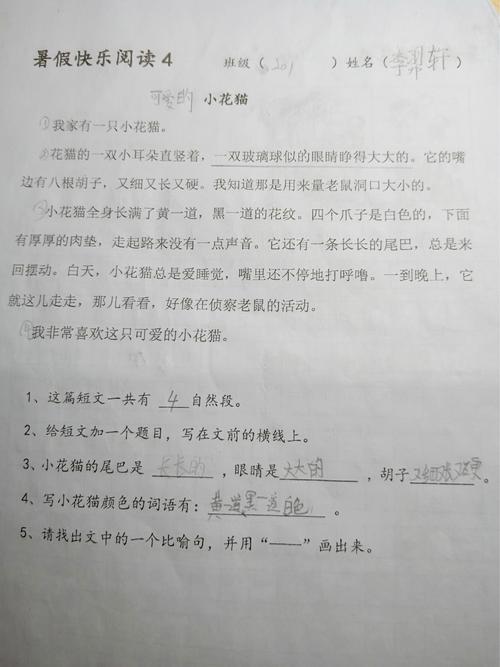 暑假快乐阅读4 班级（201）姓名（李 轩）
可爱的 小花猫
①我家有一只小花猫。
②花猫的一双小耳朵直竖着，一双玻璃球似的眼睛睁得大大的。它的嘴
边有八根胡子，又细又长又硬。我知道那是用来量老鼠洞口大小的。
③小花猫全身长满了黄一道，黑一道的花纹。四个爪子是白色的，下面
有厚厚的肉垫，走起路来没有一点声音。它还有一条长长的尾巴，总是来
回摆动。白天，小花猫总是爱睡觉，嘴里还不停地打呼噜。一到晚上，它
就这儿走走，那儿看看，好像在侦察老鼠的活动。
④我非常喜欢这只可爱的小花猫。
1、这篇短文一共有 4 自然段。
2、给短文加一个题目，写在文前的横线上。
3、小花猫的尾巴是 长长的，眼睛是大大的，胡子又细又长又硬。
4、写小花猫颜色的词语有：黄一道黑一道白色。
5、请找出文中的一个比喻句，并用“——”画出来。